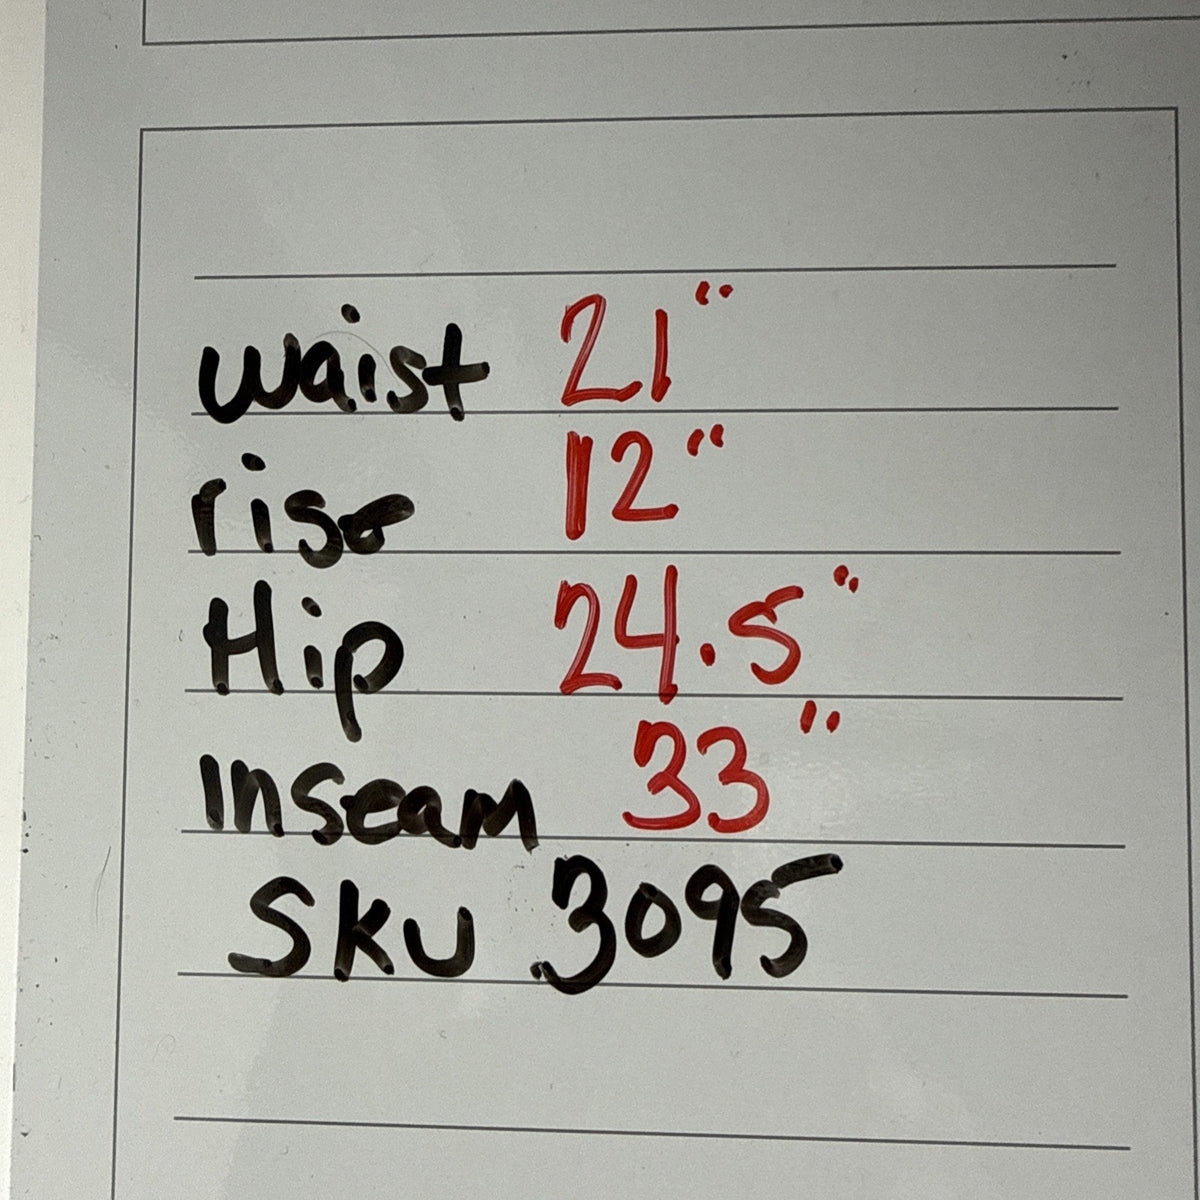 waist 21"
rise 12"
Hip 24.5"
Inseam 33"
SKU 3095